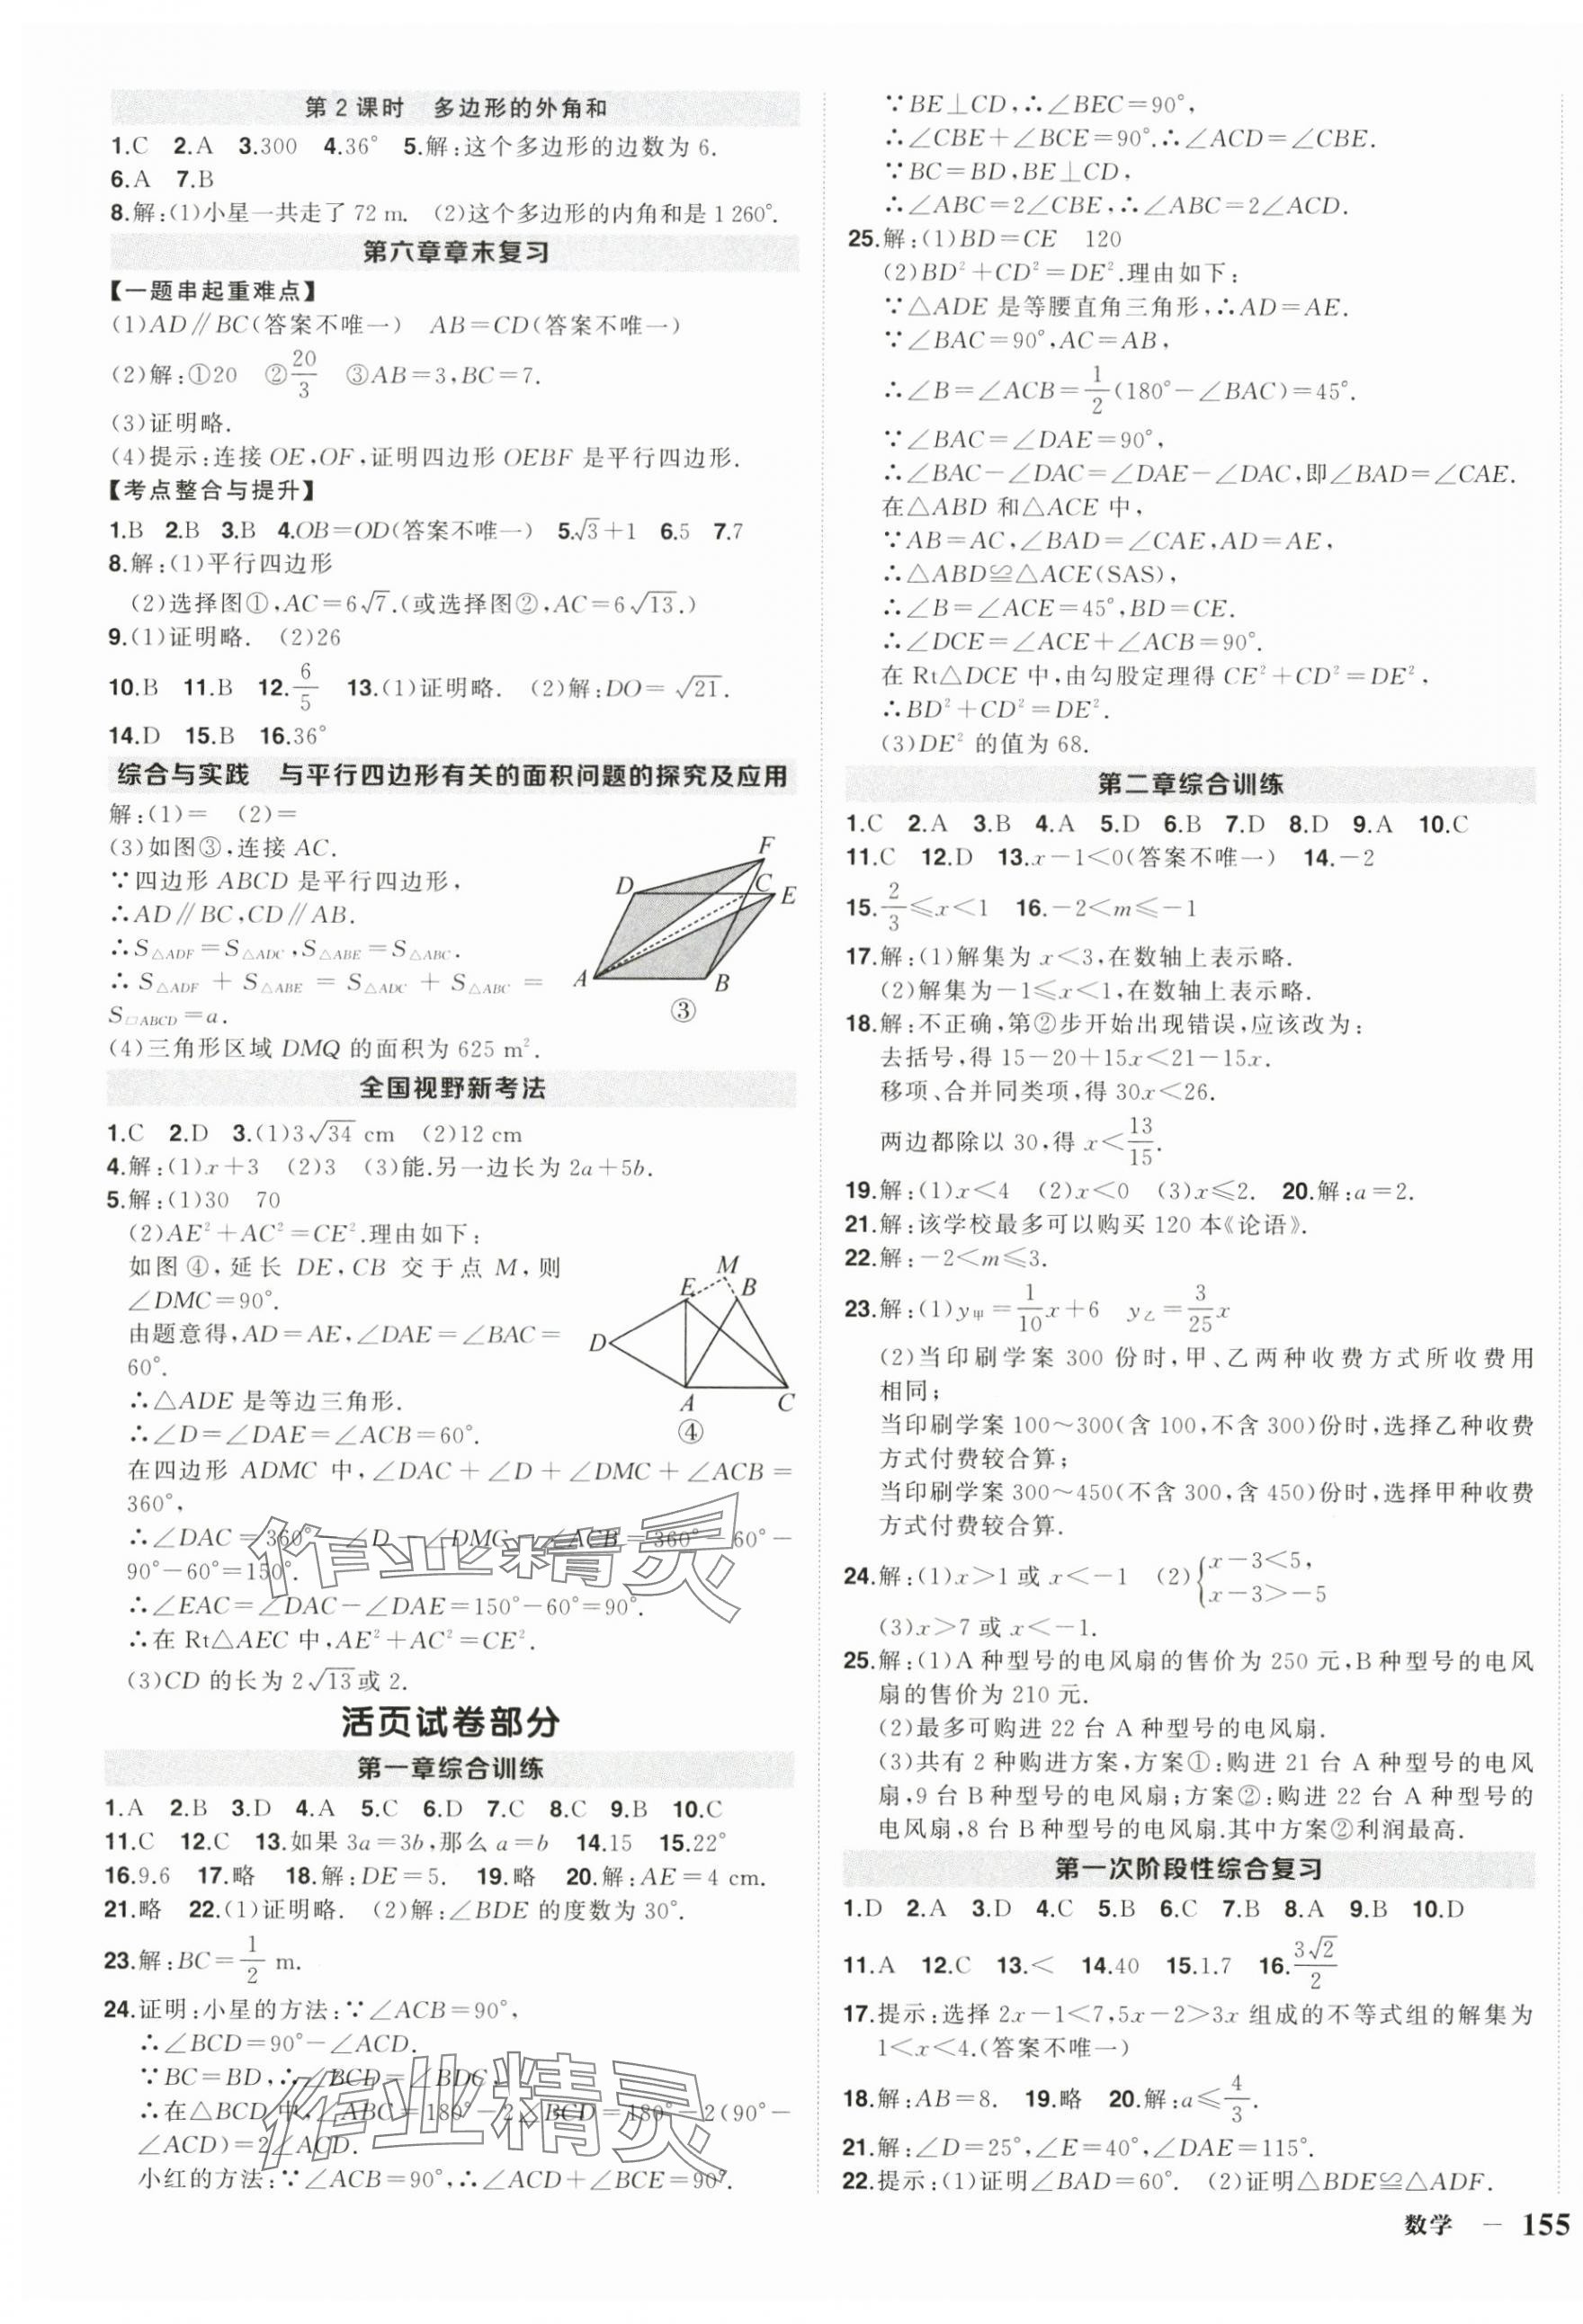 第2课时 多边形的外角和
1.C 2.A 3.300 4.36° 5.解:这个多边形的边数为6.
6.A 7.B
8.解:(1)小星一共走了72 m. (2)这个多边形的内角和是1 260°.
第六章章末复习
【一题串起重难点】
(1)AD∥BC(答案不唯一) AB=CD(答案不唯一)
(2)解:①20 ②20/3 ③AB=3,BC=7.
(3)证明略.
(4)提示:连接OE,OF,证明四边形OEBF是平行四边形.
【考点整合与提升】
1.B 2.B 3.B 4.OB=OD(答案不唯一) 5.√3+1 6.5 7.7
8.解:(1)平行四边形
(2)选择图①,AC=6√7.(或选择图②,AC=6√13.)
9.(1)证明略. (2)26
10.B 11.B 12.6/5 13.(1)证明略. (2)解:DO=√21.
14.D 15.B 16.36°
综合与实践 与平行四边形有关的面积问题的探究及应用
解:(1)= (2)=
(3)如图③,连接AC.
∵四边形ABCD是平行四边形,
∴AD∥BC,CD∥AB.
∴S△ADF=S△ADC,S△ABE=S△ABC.
∴S△ADF+S△ABE=S△ADC+S△ABC=
S▱ABCD=a.
F
D
C
E
A
B
③
(4)三角形区域DMQ的面积为625 m².
全国视野新考法
1.C 2.D 3.(1)3√34 cm (2)12 cm
4.解:(1)x+3 (2)3 (3)能.另一边长为2a+5b.
5.解:(1)30 70
(2)AE²+AC²=CE².理由如下:
如图④,延长DE,CB交于点M,则
∠DMC=90°.
由题意得,AD=AE,∠DAE=∠BAC=
60°.
∴△ADE是等边三角形.
∴∠D=∠DAE=∠ACB=60°.
M
E
B
D
A
C
④
在四边形ADMC中,∠DAC+∠D+∠DMC+∠ACB=
360°,
∴∠DAC=360°-∠D-∠DMC-∠ACB=360°-60°-
90°-60°=150°.
∴∠EAC=∠DAC-∠DAE=150°-60°=90°.
∴在Rt△AEC中,AE²+AC²=CE².
(3)CD的长为2√13或2.
作业精灵
活页试卷部分
第一章综合训练
1.A 2.B 3.D 4.A 5.C 6.D 7.C 8.C 9.B 10.C
11.C 12.C 13.如果3a=3b,那么a=b 14.15 15.22°
16.9.6 17.略 18.解:DE=5. 19.略 20.解:AE=4 cm.
21.略 22.(1)证明略. (2)解:∠BDE的度数为30°.
23.解:BC=1/2 m.
24.证明:小星的方法:∵∠ACB=90°,
∴∠BCD=90°-∠ACD.
∵BC=BD,∴∠BCD=∠BDC.
∴在△BCD中,∠ABC=180°-2∠BCD=180°-2(90°-
∠ACD)=2∠ACD.
小红的方法:∵∠ACB=90°,∴∠ACD+∠BCE=90°.
作业精灵
∵BE⊥CD,∴∠BEC=90°,
∴∠CBE+∠BCE=90°.∴∠ACD=∠CBE.
∵BC=BD,BE⊥CD,
∴∠ABC=2∠CBE,∴∠ABC=2∠ACD.
25.解:(1)BD=CE 120
(2)BD²+CD²=DE².理由如下:
∵△ADE是等腰直角三角形,∴AD=AE.
∵∠BAC=90°,AC=AB,
∴∠B=∠ACB=1/2(180°-∠BAC)=45°.
∵∠BAC=∠DAE=90°,
∴∠BAC-∠DAC=∠DAE-∠DAC,即∠BAD=∠CAE.
在△ABD和△ACE中,
∵AB=AC,∠BAD=∠CAE,AD=AE,
∴△ABD≌△ACE(SAS),
∴∠B=∠ACE=45°,BD=CE.
∴∠DCE=∠ACE+∠ACB=90°.
在Rt△DCE中,由勾股定理得CE²+CD²=DE²,
∴BD²+CD²=DE².
(3)DE²的值为68.
第二章综合训练
1.C 2.A 3.B 4.A 5.D 6.B 7.D 8.D 9.A 10.C
11.C 12.D 13.x-1<0(答案不唯一) 14.-2
15.2/3≤x<1 16.-2<m≤-1
17.解:(1)解集为x<3,在数轴上表示略.
(2)解集为-1≤x<1,在数轴上表示略.
18.解:不正确,第②步开始出现错误,应该改为:
去括号,得15-20+15x<21-15x.
移项、合并同类项,得30x<26.
两边都除以30,得x<13/15.
19.解:(1)x<4 (2)x<0 (3)x≤2. 20.解:a=2.
21.解:该学校最多可以购买120本《论语》.
22.解:-2<m≤3.
23.解:(1)y甲=1/10x+6 y乙=3/25x
(2)当印刷学案300份时,甲、乙两种收费方式所收费用
相同;
当印刷学案100~300(含100,不含300)份时,选择乙种收费
方式付费较合算;
当印刷学案300~450(不含300,含450)份时,选择甲种收费
方式付费较合算.
24.解:(1)x>1或x<-1 (2){x-3<5, x-3>-5
(3)x>7或x<-1.
25.解:(1)A种型号的电风扇的售价为250元,B种型号的电风
扇的售价为210元.
(2)最多可购进22台A种型号的电风扇.
(3)共有2种购进方案,方案①:购进21台A种型号的电风
扇,9台B种型号的电风扇;方案②:购进22台A种型号的
电风扇,8台B种型号的电风扇.其中方案②利润最高.
第一次阶段性综合复习
1.D 2.A 3.D 4.C 5.B 6.C 7.B 8.A 9.B 10.D
11.A 12.C 13.< 14.40 15.1.7 16.3√2/2
17.提示:选择2x-1<7,5x-2>3x组成的不等式组的解集为
1<x<4.(答案不唯一)
18.解:AB=8. 19.略 20.解:a≤4/3.
21.解:∠D=25°,∠E=40°,∠DAE=115°.
22.提示:(1)证明∠BAD=60°. (2)证明△BDE≌△ADF.
数学 — 155